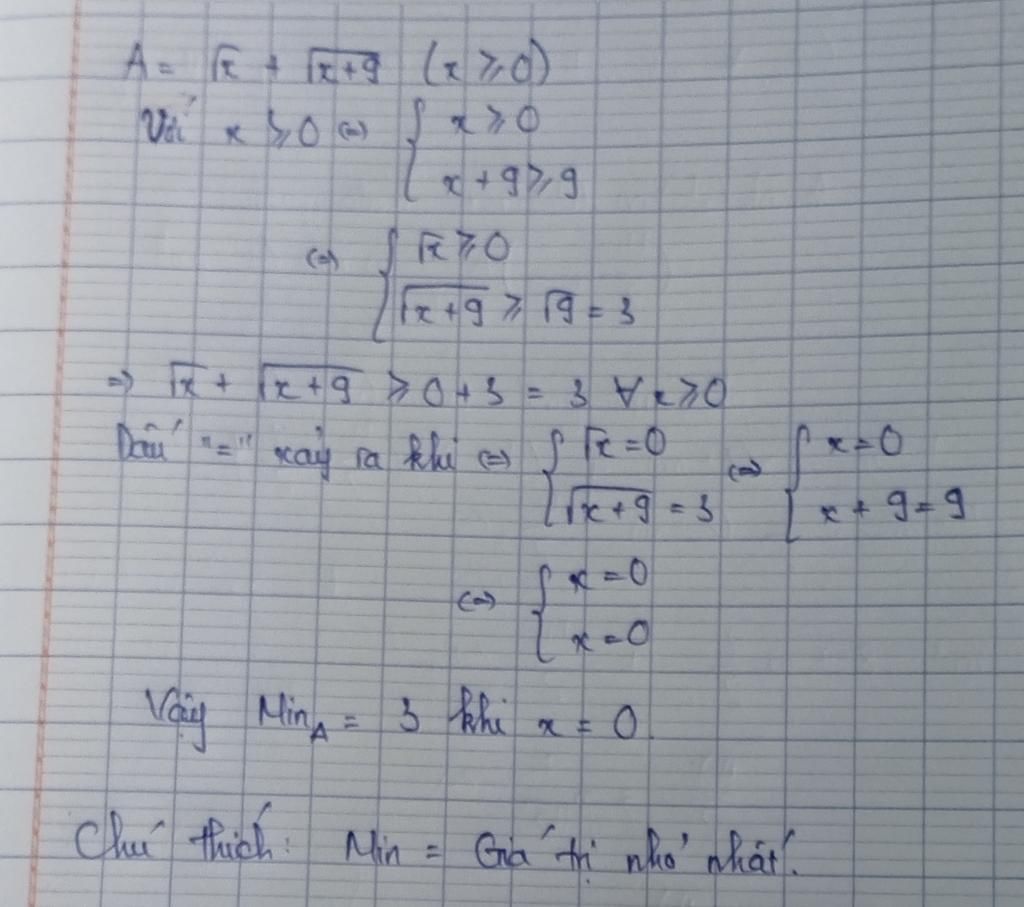 A = √x + √(x+9) (x ≥ 0)
Với x ≥ 0 ⇔ { x ≥ 0
x + 9 ≥ 9
⇔ { √x ≥ 0
√(x+9) ≥ √9 = 3
⇒ √x + √(x+9) ≥ 0 + 3 = 3 ∀ x ≥ 0
Dấu "=" xảy ra khi ⇔ { √x = 0 ⇔ { x = 0
√(x+9) = 3 x + 9 = 9
⇔ { x = 0
x = 0
Vậy Min_A = 3 khi x = 0
Chú thích: Min = Giá trị nhỏ nhất.